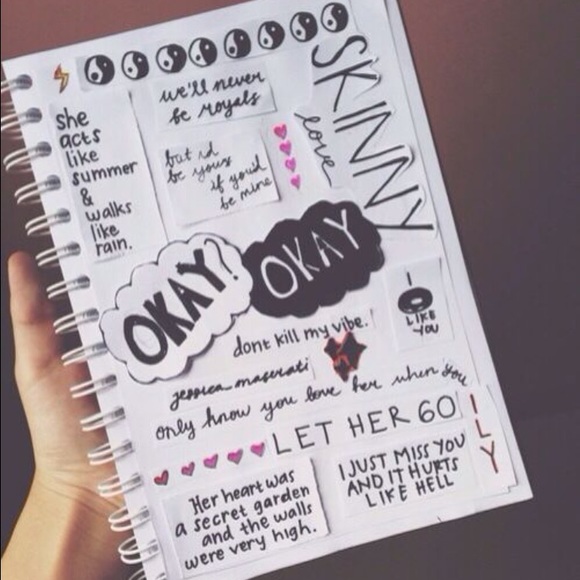 she
acts
like
summer
&
walks
like
rain.
we'll never
be royals
but i'd
be yours
if you'd
be mine
SKINNY
love
OKAY?
OKAY
I
LIKE
YOU
dont kill my vibe.
jessica maserati
only know you love her when you
LET HER GO
ILY
Her heart was
a secret garden
and the walls
were very high.
I JUST MISS YOU
AND IT HURTS
LIKE HELL